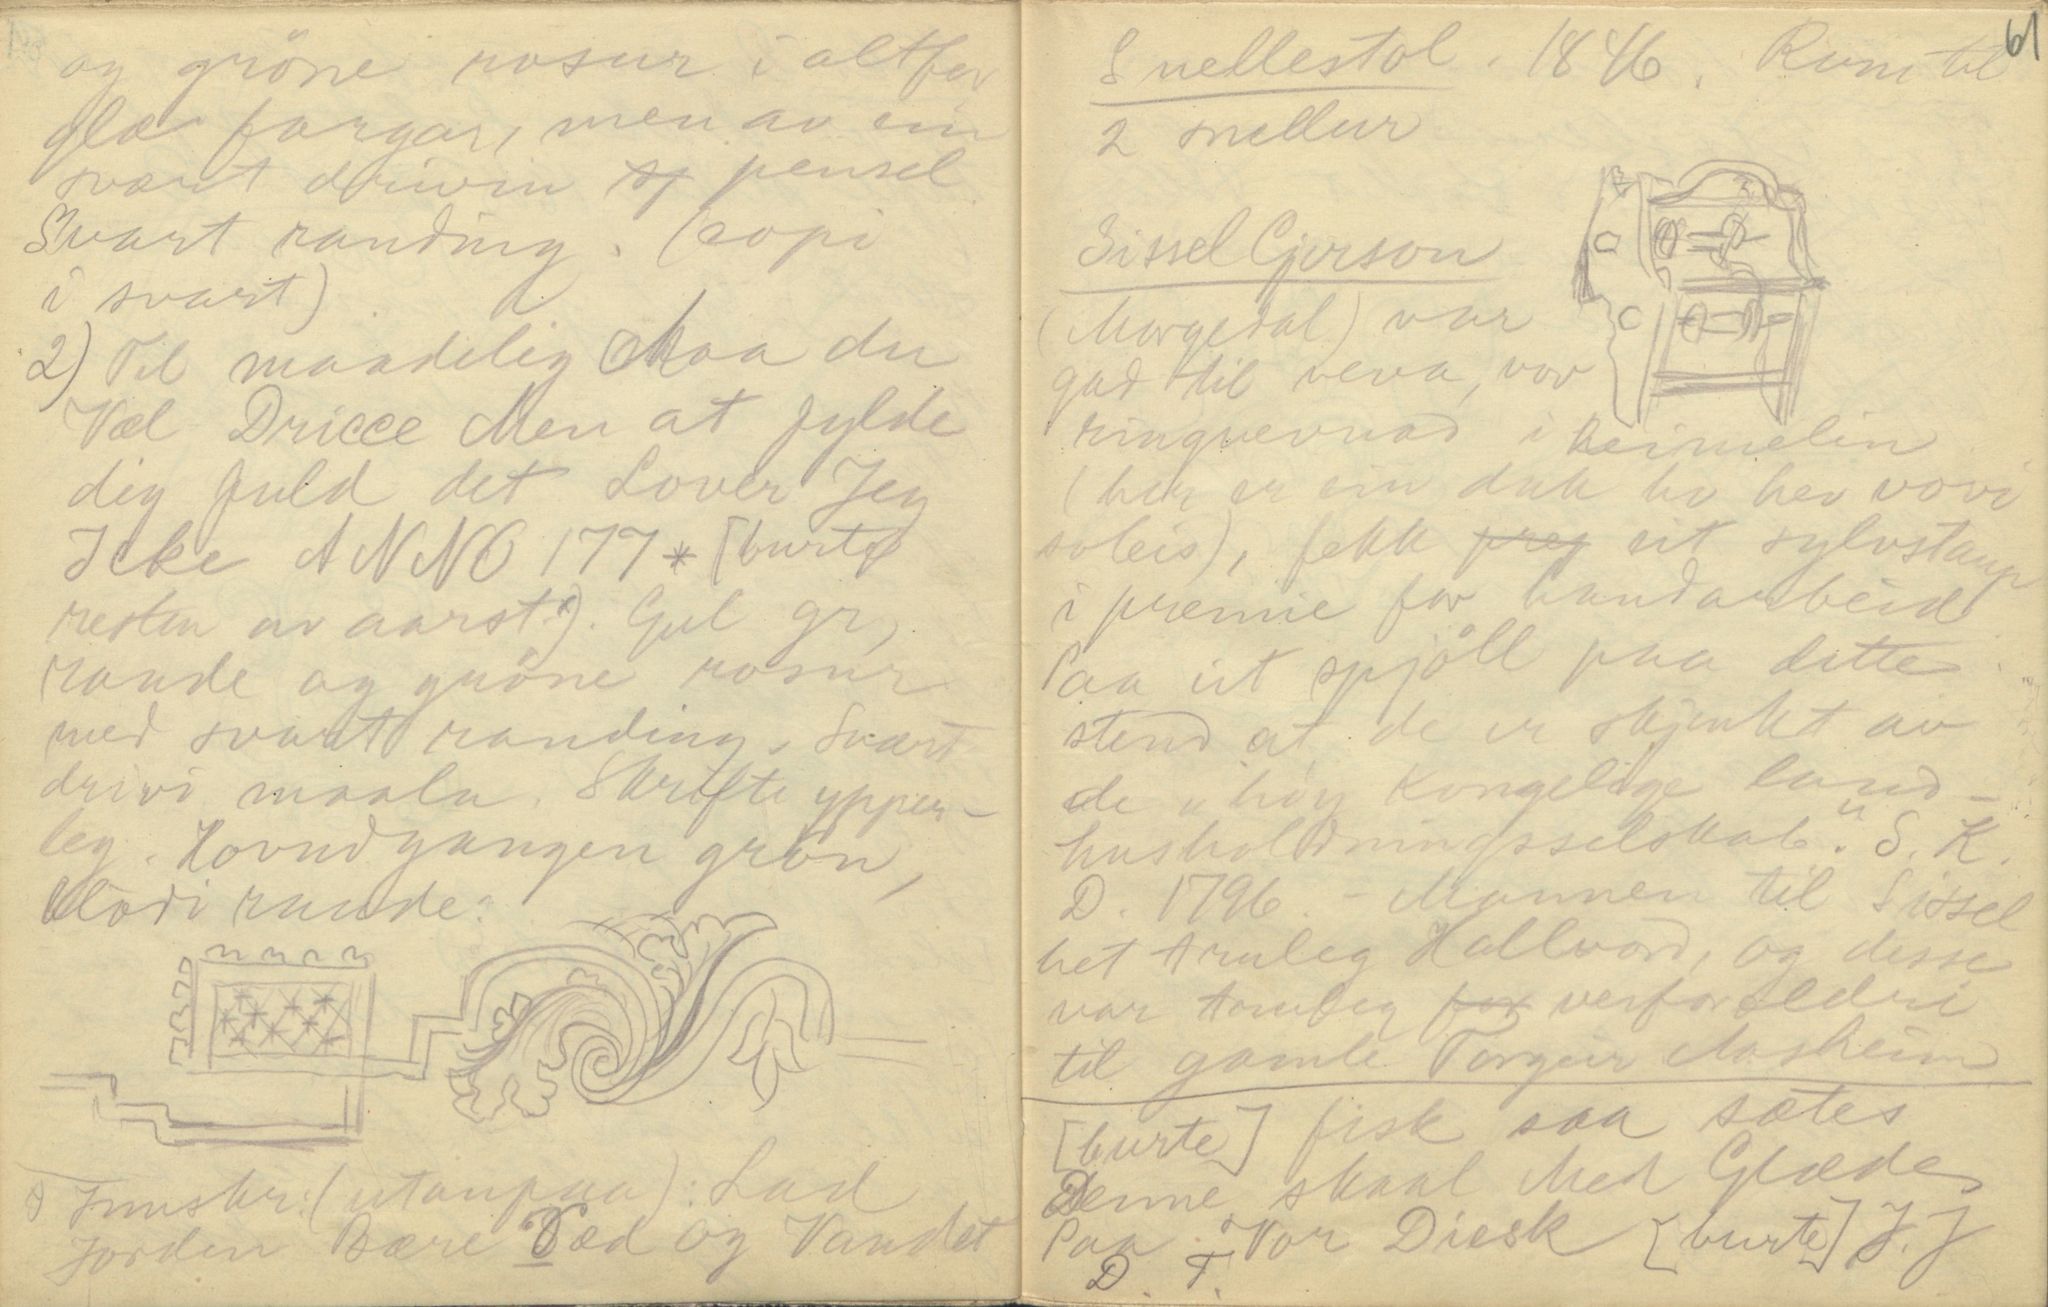 og gröne rosur i altfor
glæ fargar, men av ein
svært drivin sp pensel
Svart randing. (copi
i svart)
2) Til maadelig Maa du
Væl Dricce Men at fylde
dig fuld det Lover Jeg
Icke ANNO 177* [burte
resten av aarst.]. Gul gr,
raude og gröne rosur
med svart randing. Svært
drivi maaln. Skrifti ypper-
leg. Hovudgangen grön,
blödi raude:
Innskr: (utanpaa): Lad
Jorden Bære Sæd og Vandet
61
Snellestol. 1846. Rom til
2 snellur
Sissel Gjerson
(Morgedal) var
gad til veva, vov
ringvevnad i heimelin
(her er ein duk ho hev vovi
soleis), fekk prej eit sylvstaup
i premie for handarbeid
Paa eit spjöll paa dette
stend at de er skjenkt av
de "höy Kongelige land-
husholdningsselskab." S. K.
D. 1796. - Mannen til Sissel
het truleg Hallvord, og desse
var truleg for verforeldri
til gamle Torgeir Aasheim
[burte] fisk saa sætes
Denne skaal Med Glæde
Paa Vor Diesk [burte] J. J
D. T.